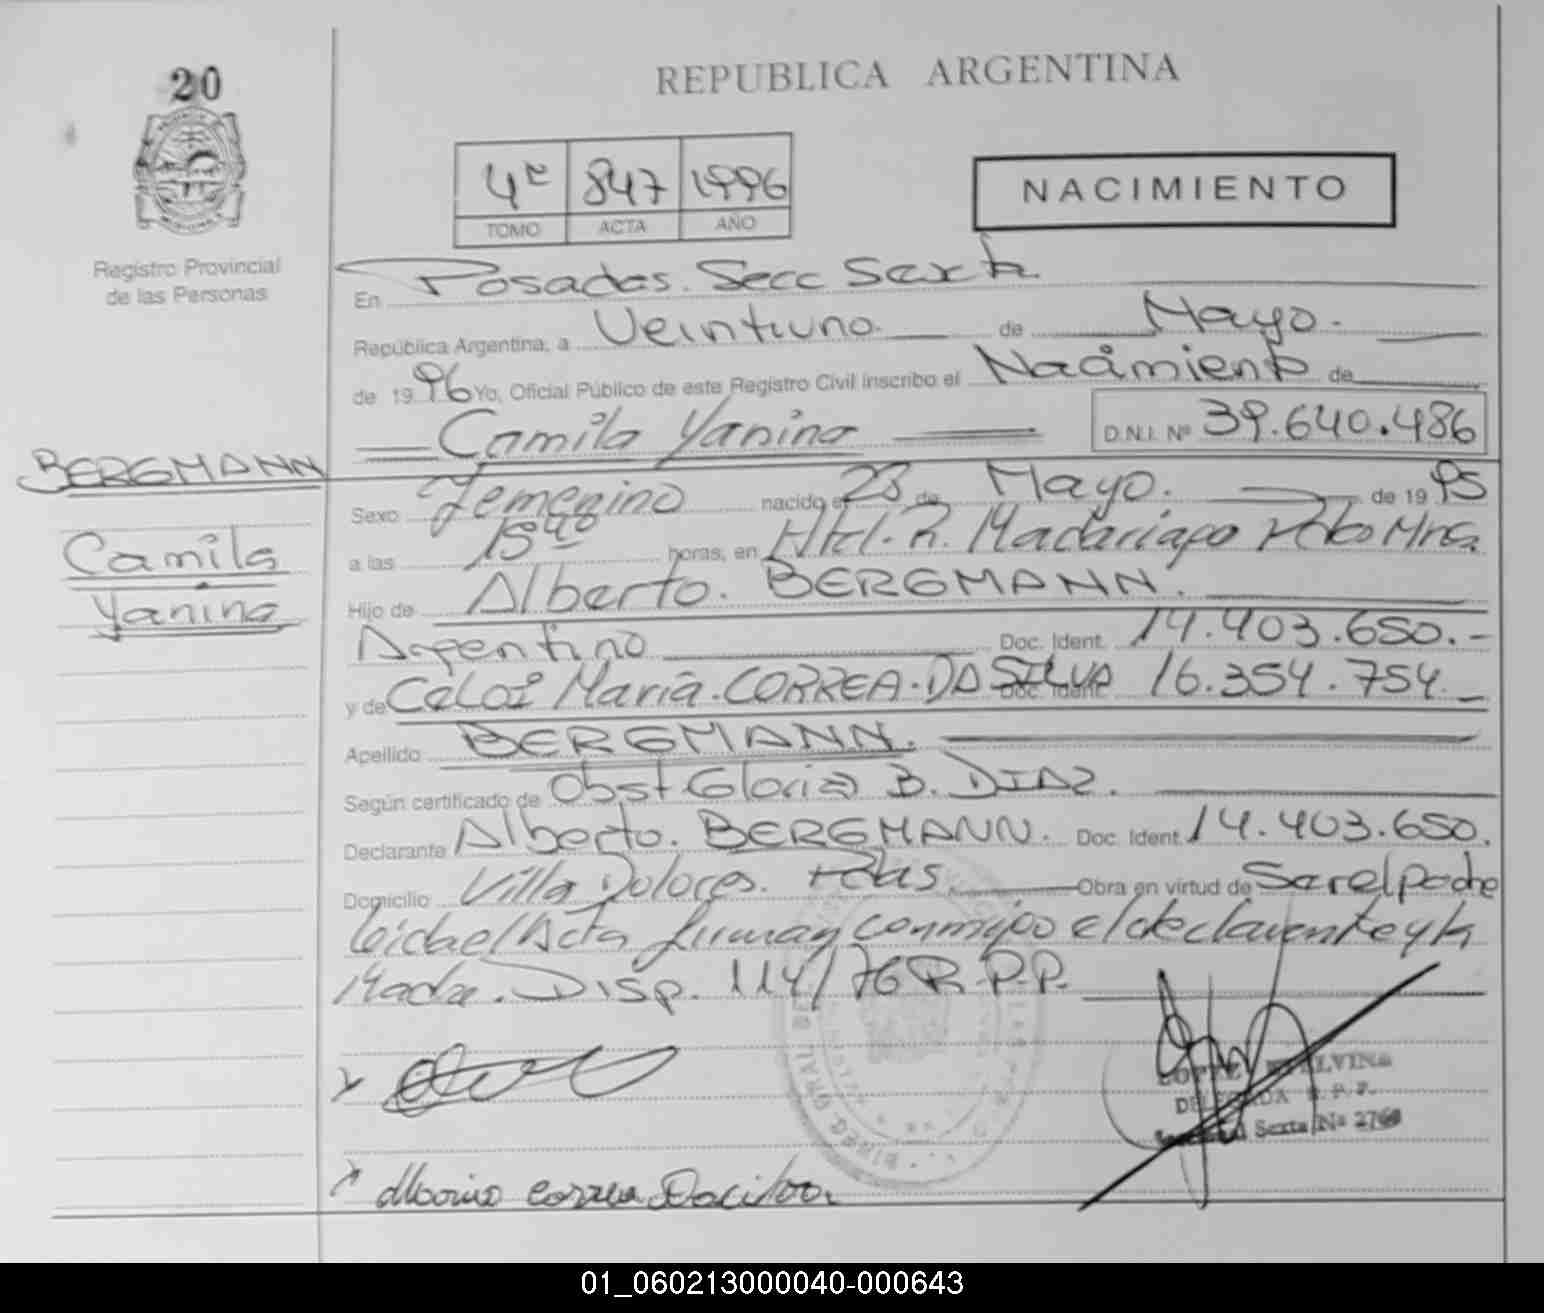 20
REPUBLICA ARGENTINA
4º 847 1996
TOMO ACTA AÑO
NACIMIENTO
Registro Provincial
de las Personas
En Posadas. Secc Sexta
República Argentina, a Veintiuno. de Mayo.
de 1996 Yo, Oficial Público de este Registro Civil inscribo el Nacimiento de
Camila Yanina D.N.I. Nº 39.640.486
BERGMANN
Camila
Yanina
Sexo Femenino nacido el 23 de Mayo. de 1995
a las 15 40 horas, en Htal. R. Madariaga Pdas Mnes.
Hijo de Alberto. BERGMANN.
Argentino Doc. Ident. 14.403.650.-
y de Celoi María. CORREA. DA SILVA Doc. Ident. 16.354.754.
Apellido BERGMANN.
Según certificado de Obst Gloria B. DIAZ.
Declarante Alberto. BERGMANN. Doc. Ident. 14.403.650.
Domicilio Villa Dolores. Pdas. Obra en virtud de Ser el padre
leida el Acta firman conmigo el declarante y la
Madre. Disp. 114/76 R.P.P.
DELEGADA R.P.P.
Sexta Nº 2768
Maria Correa Da Silva
01_060213000040-000643